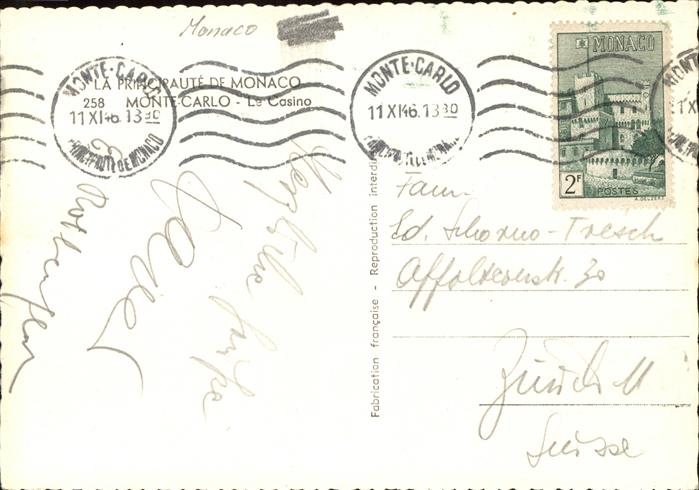 Monaco
MONTE-CARLO
11 XI 46. 13 30
PRINCIPAUTÉ DE MONACO
LA PRINCIPAUTÉ DE MONACO
258 MONTE-CARLO - Le Casino
MONTE-CARLO
11 XI 46. 13 30
PRINCIPAUTÉ DE MONACO
MONACO
2F
POSTES
Herzliche Grüsse
Fabrication française - Reproduction interdite
Fam.
Ed. Schorno-Tresch
Affolternstr. 30
Zürich 11
Suisse